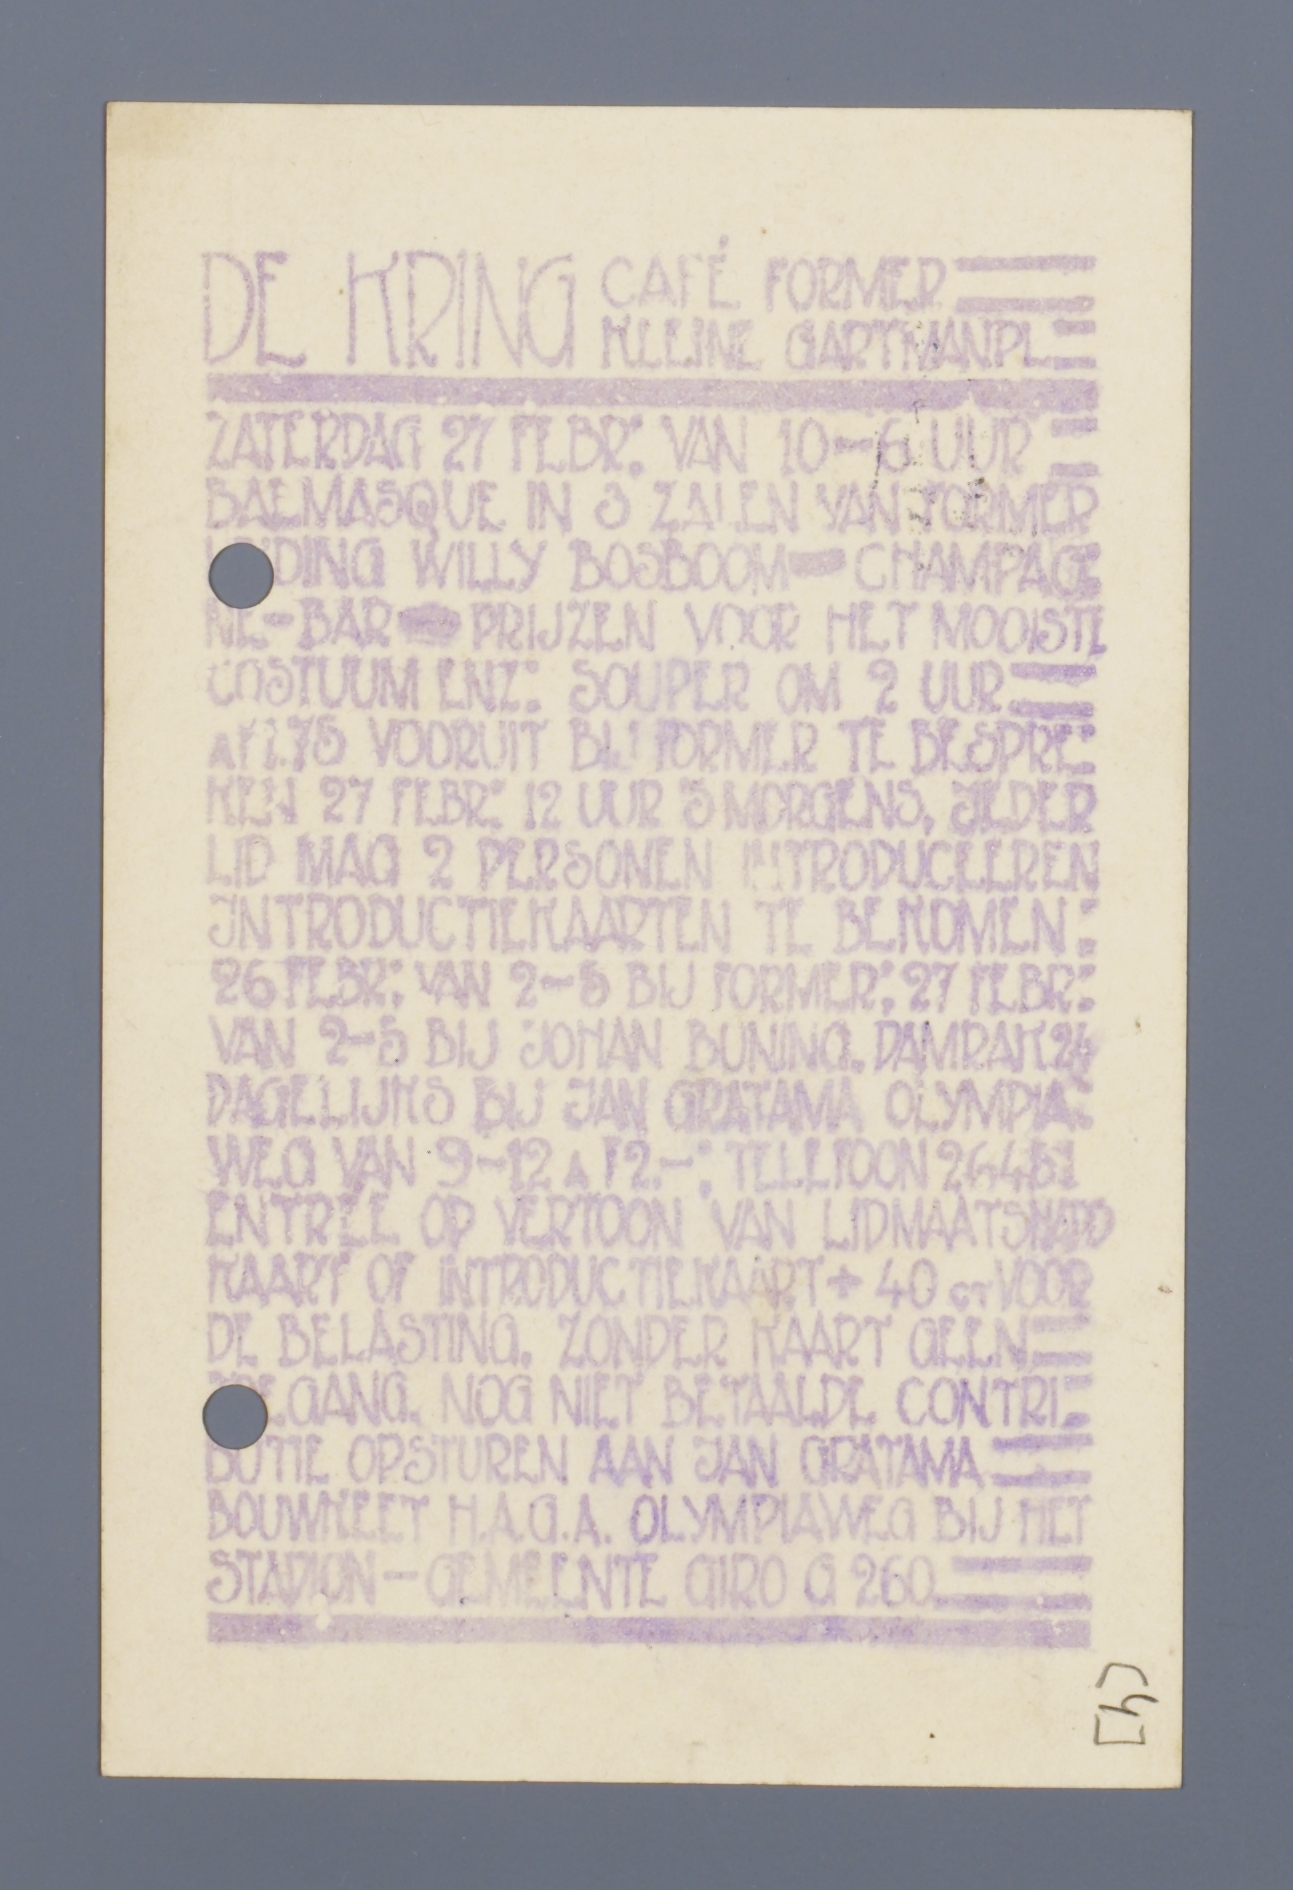 DE KRING CAFÉ FORMER
KLEINE GARTMANPL
ZATERDAG 27 FEBR: VAN 10-6 UUR
BALMASQUE IN 3 ZALEN VAN FORMER
WILLY BOSBOOM — CHAMPAG=
NE-BAR — PRIJZEN VOOR HET MOOISTE
COSTUUM ENZ: SOUPER OM 2 UUR
A F1.75 VOORUIT BIJ FORMER TE BESPRE=
KEN 27 FEBR: 12 UUR 'S MORGENS. IEDER
LID MAG 2 PERSONEN INTRODUCEEREN
INTRODUCTIEKAARTEN TE BEKOMEN:
26 FEBR: VAN 2-5 BIJ FORMER: 27 FEBR:
VAN 2-5 BIJ JOHAN BUNING. DAMRAK 24
DAGELIJKS BIJ JAN GRATAMA OLYMPIA=
WEG VAN 9-12 A F2.-: TELEFOON 26451
ENTREE OP VERTOON VAN LIDMAATSHAPS
KAART OF INTRODUCTIEKAART + 40 CT VOOR
DE BELASTING. ZONDER KAART GEEN
NOG NIET BETAALDE CONTRI=
BUTIE OPSTUREN AAN JAN GRATAMA
BOUWKEET H.A.G.A. OLYMPIAWEG BIJ HET
STADION - GEMEENTE GIRO G 260.